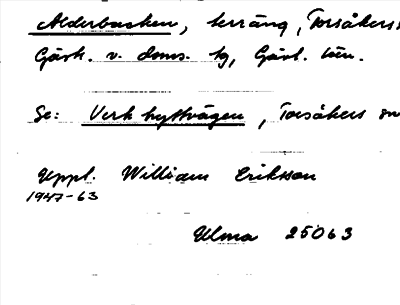 Alderbacken, terräng, Torsåkers
Gästr. v. doms. tg, Gävl. län.
Se: Verkhyttvägen, Torsåkers sn
Uppl. William Eriksson
1947-63
Ulma 25063